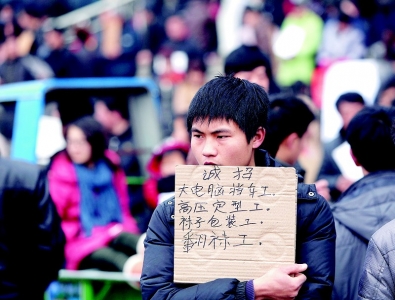 诚招
大电脑挡车工.
高压定型工.
袜子包装工.
翻袜工.